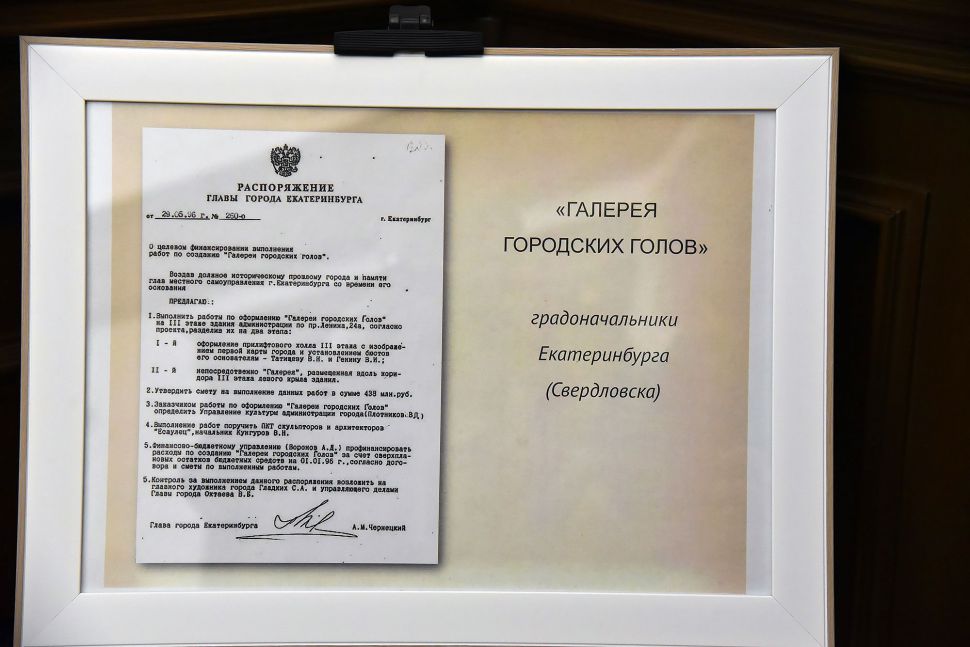 РАСПОРЯЖЕНИЕ
ГЛАВЫ ГОРОДА ЕКАТЕРИНБУРГА
от 29.05.96 г. № 260-о
г. Екатеринбург
О целевом финансировании выполнения
работ по созданию "Галереи городских голов".
Воздав должное историческому прошлому города и памяти
глав местного самоуправления г.Екатеринбурга со времени его
основания
ПРЕДЛАГАЮ:
1.Выполнить работы по оформлению "Галереи городских Голов"
на III этаже здания администрации по пр.Ленина,24а, согласно
проекта,разделив их на два этапа:
I - й оформление прилифтового холла III этажа с изображе-
нием первой карты города и установлением бюстов
его основателям - Татищеву В.Н. и Генину В.И.;
II - й непосредственно "Галерея", размещенная вдоль кори-
дора III этажа левого крыла здания.
2.Утвердить смету на выполнение данных работ в сумме 438 млн.руб.
3.Заказчиком работы по оформлению "Галереи городских Голов"
определить Управление культуры администрации города(Плотников.В.Д.)
4.Выполнение работ поручить ПКТ скульпторов и архитекторов
"Есаулец",начальник Кунгуров В.Н.
5.Финансово-бюджетному управлению (Воронов А.Д.) профинансировать
расходы по созданию "Галереи городских Голов" за счет сверхпла-
новых остатков бюджетных средств на 01.01.96 г.,согласно дого-
вора и сметы по выполненным работам.
5.Контроль за выполнением данного распоряжения возложить на
главного художника города Гладких С.А. и управляющего делами
Главы города Октаева В.Б.
Глава города Екатеринбурга
А.М.Чернецкий
«ГАЛЕРЕЯ
ГОРОДСКИХ ГОЛОВ»
градоначальники
Екатеринбурга
(Свердловска)